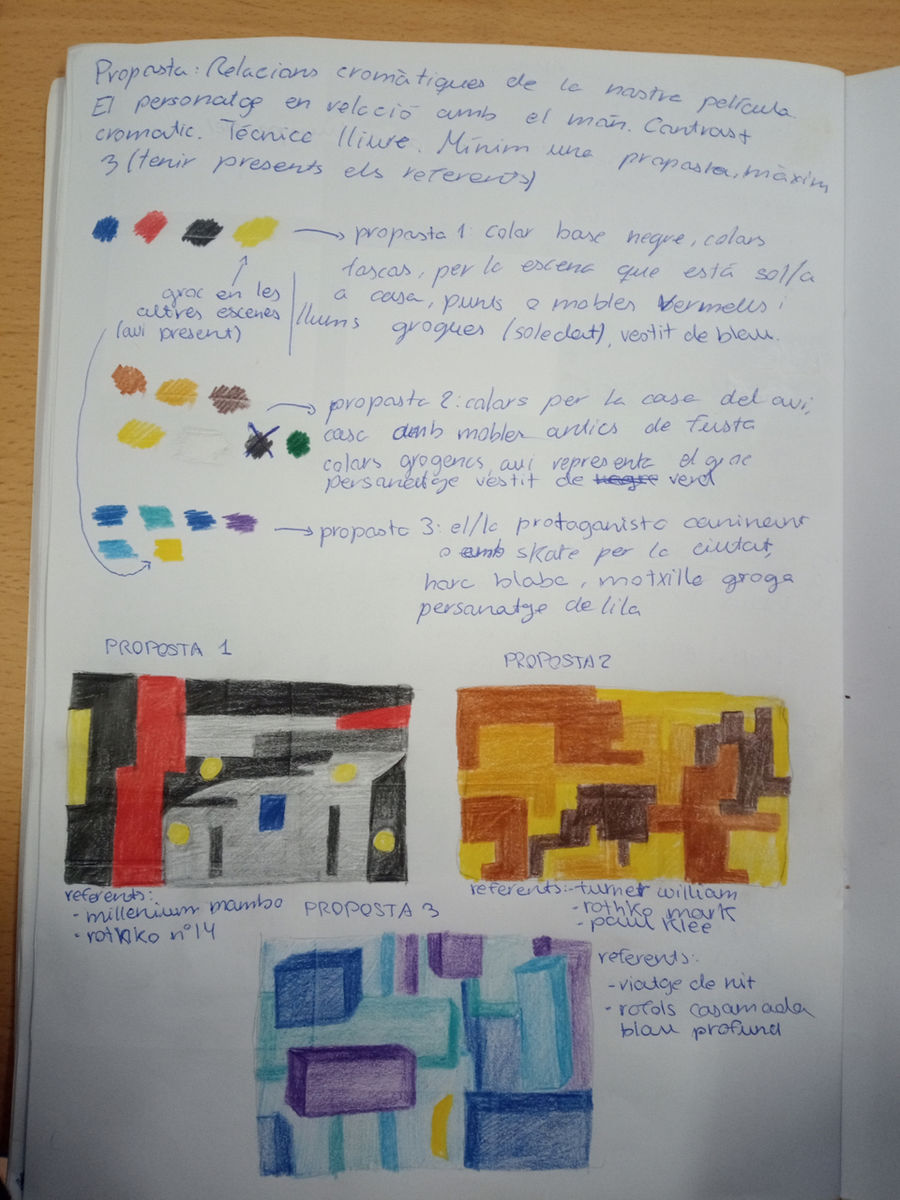 Proposta: Relacions cromàtiques de la nostre película
El personatge en relació amb el món. Contrast
cromatic. Técnica lliure. Mínim una proposta, màxim
3 (tenir presents els referents)
proposta 1: color base negre, colors
foscos, per la escena que está sol/a
a casa, punts o mobles vermells i
llums grogues (soledat), vestit de blau.
groc en les
altres escenes
(avi present)
proposta 2: colors per la casa del avi,
casa amb mobles antics de fusta
colors grogencs, avi representa el groc
personatge vestit de negre verd
proposta 3: el/la protagonista caminant
o amb skate per la ciutat,
harc blabc, motxilla groga
personatge de lila
PROPOSTA 1
PROPOSTA 2
referents:
- millenium mambo
- rothko nº14
referents: - turner william
- rothko mark
- paul klee
PROPOSTA 3
referents:
- viatge de nit
- rofols casamada
blau profund